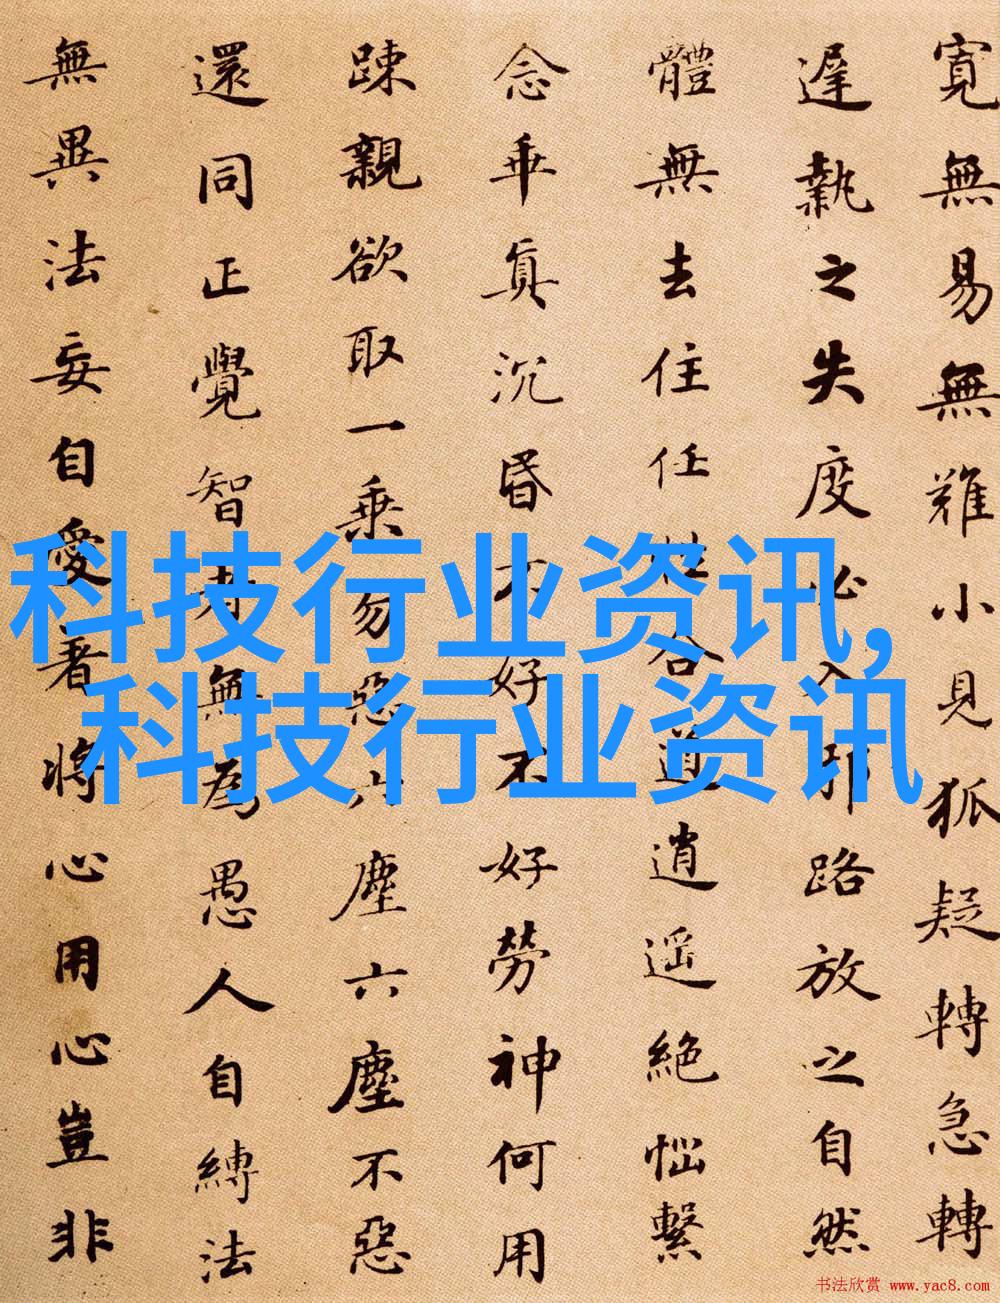 寛無易無難小見狐疑轉急轉
遲執之失度必入邪路放之自然
體無去住任性合道逍遥絶惱繫
念乖真沉昏不好不好勞神何用
踈親欲取一乗勿惡六塵六塵不惡
還同正覺智者無為愚人自縛法
無異法妄自愛著將心用心豈非
科技行业资讯,
科技行业资讯
书法欣赏 www.yac8.com